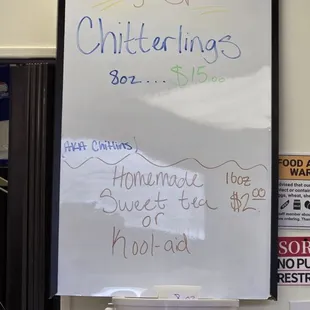 Chitterlings
8oz... $15.00
AKA Chitlins
Homemade 16oz
Sweet tea $2.00
or
Kool-aid
8oz
FOOD A
WAR
SOR
NO PU
RESTR